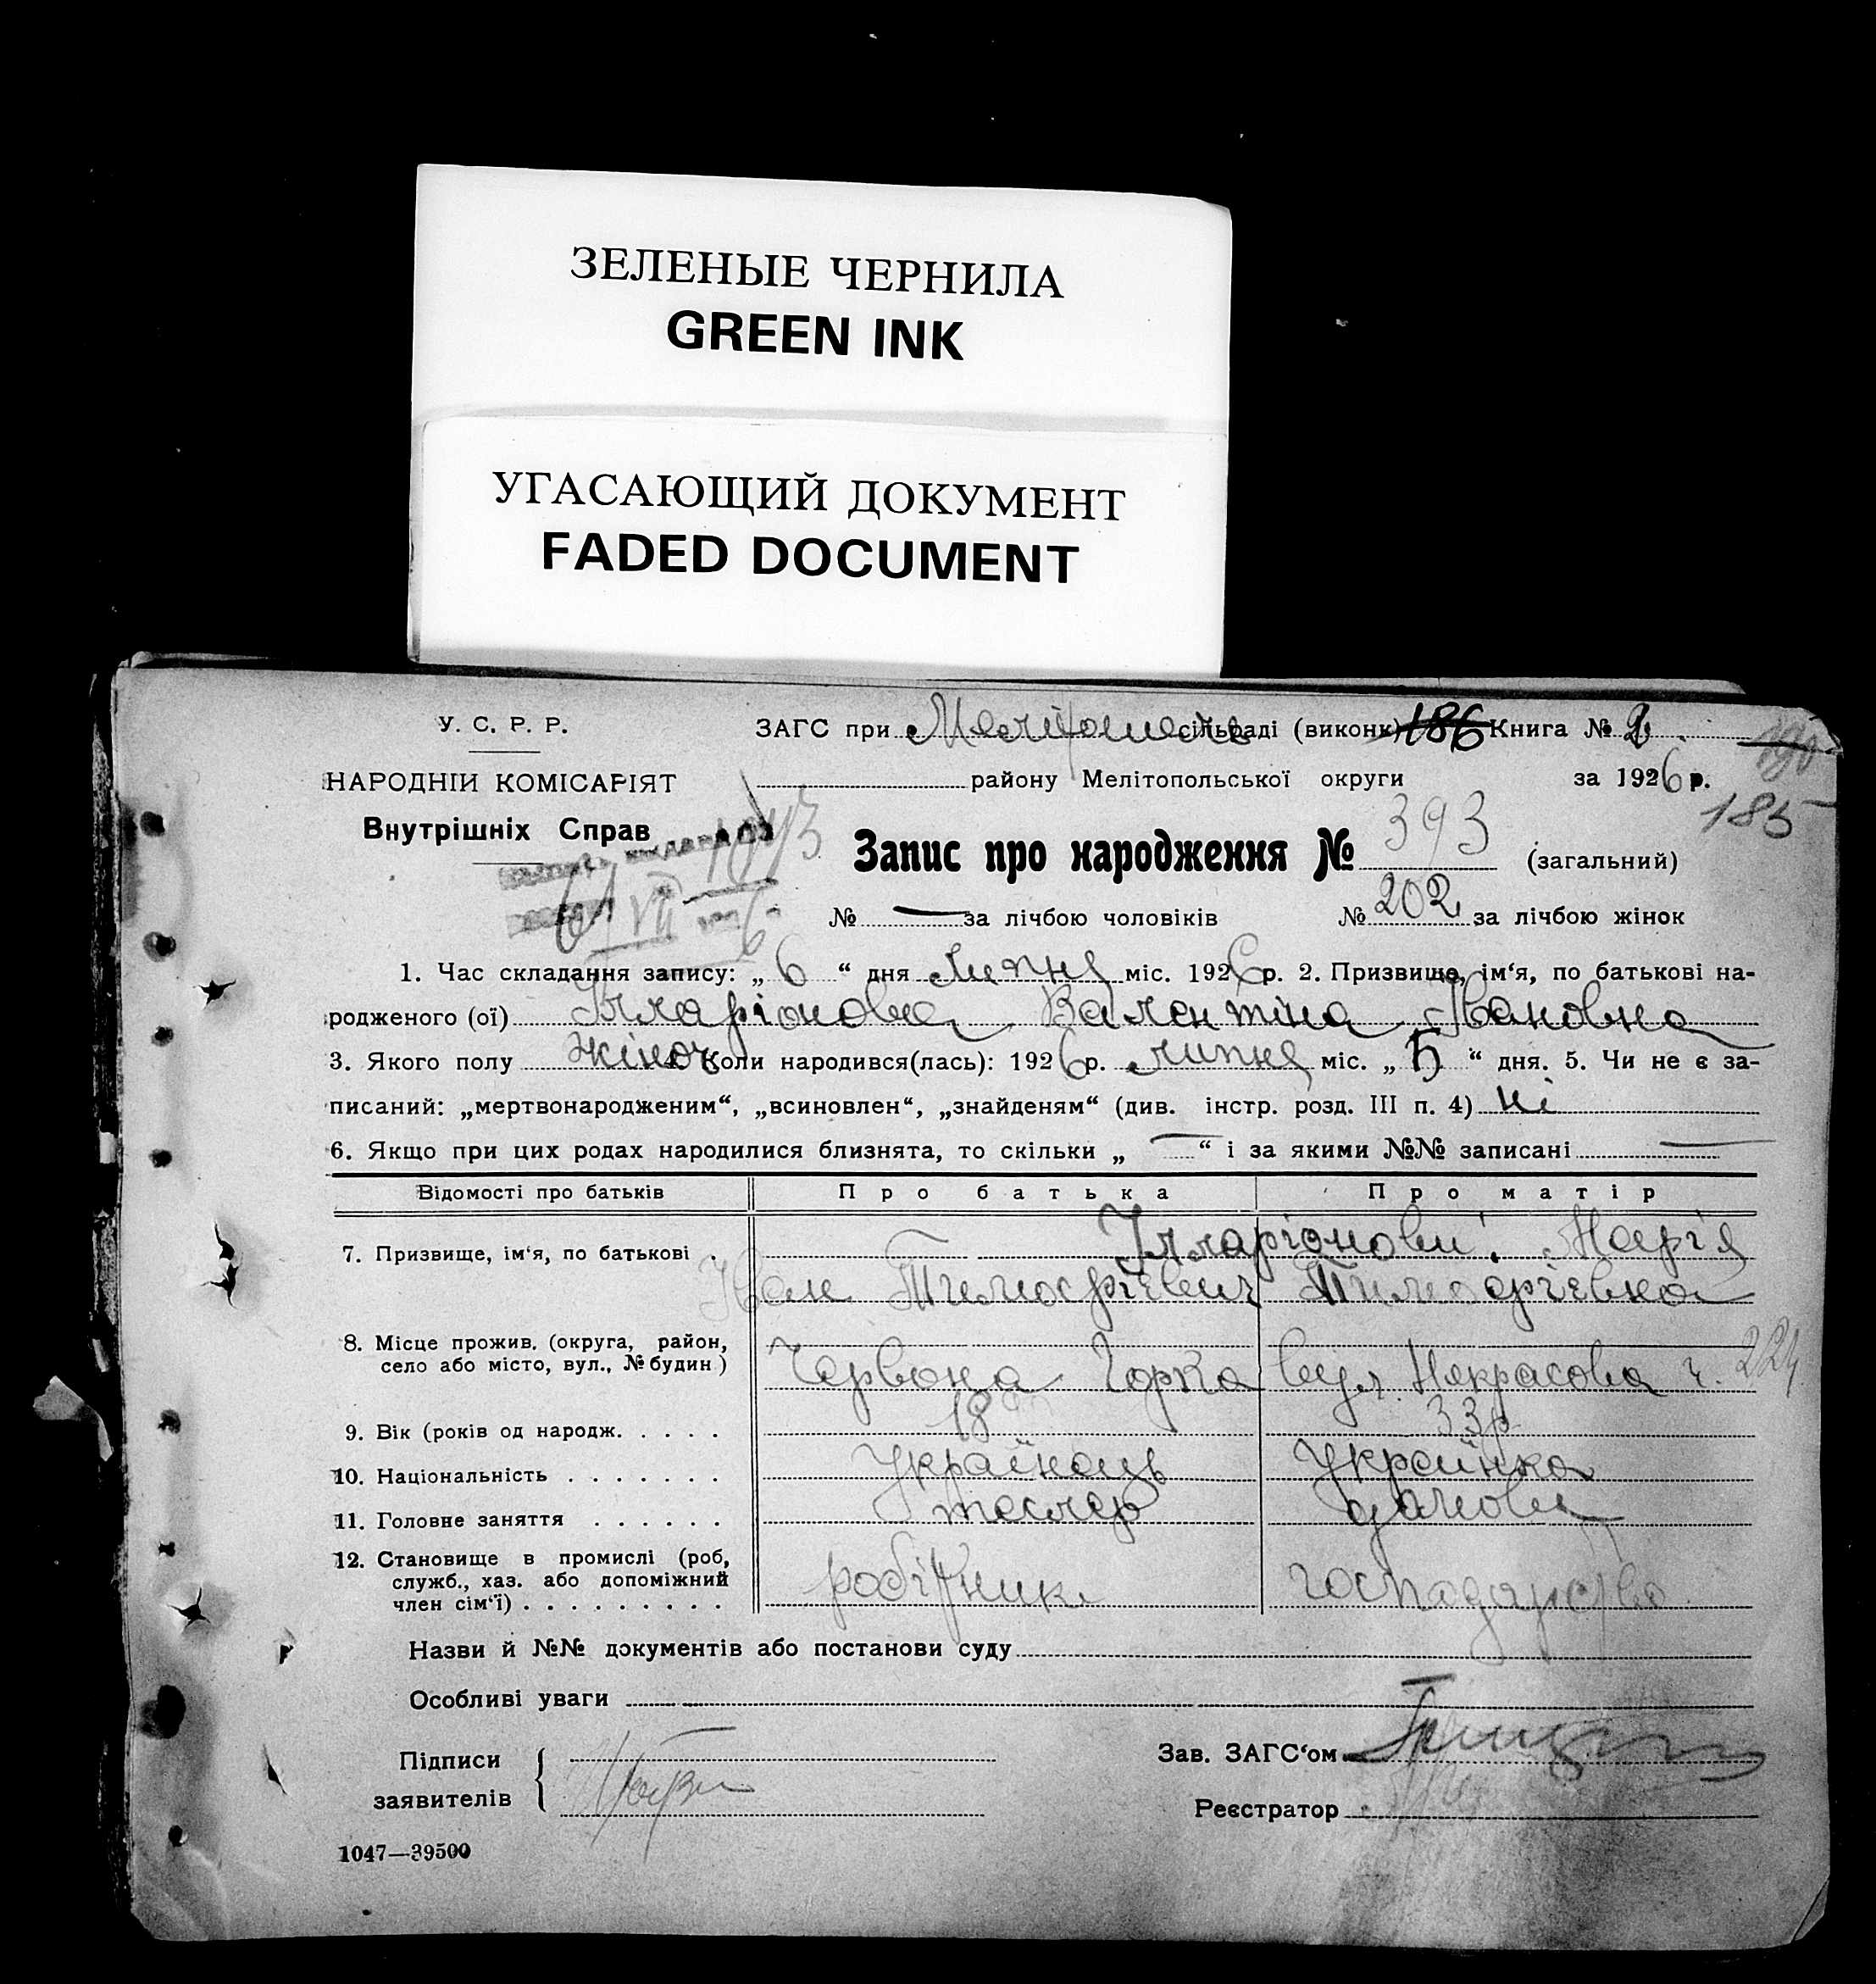 ЗЕЛЕНЫЕ ЧЕРНИЛА
GREEN INK
УГАСАЮЩИЙ ДОКУМЕНТ
FADED DOCUMENT
У. С. Р. Р.
ЗАГС при сільраді (виконк) 186 Книга № 2.
НАРОДНІЙ КОМІСАРІЯТ
району Мелітопольської округи за 1926 р.
185
Внутрішніх Справ
Запис про народження № 393 (загальний)
№ — за лічбою чоловіків № 202 за лічбою жінок
1. Час складання запису: „ 6 “ дня Липня міс. 1926 р. 2. Призвище, ім‘я, по батькові на-
родженого (ої) Ілларіонова Валентіна Івановна
3. Якого полу жіноч 4. Коли народився(лась): 1926 р. липня міс. „ 5 “ дня. 5. Чи не є за-
писаний: „мертвонародженим“, „всиновлен“, „знайденям“ (див. інстр. розд. III п. 4) ні
6. Якщо при цих родах народилися близнята, то скільки „ — “ і за якими №№ записані —
Відомості про батьків Про батька Про матір
7. Призвище, ім‘я, по батькові . Ілларіонови: Марія
Іван Тимофієвич Тимофієвна
8. Місце прожив. (округа, район,
село або місто, вул., № будин) Червона Горка вул. Некрасова ч. 224
9. Вік (років од народж. . . . . 33р
10. Національність . . . . . . . Українець Українка
11. Головне заняття . . . . . . тесляр домове
12. Становище в промислі (роб,
служб., хаз. або допоміжний
член сім‘ї) . . . . . . . . . робітник господарство
Назви й №№ документів або постанови суду
Особливі уваги
Підписи
заявителів
Зав. ЗАГС‘ом
Реєстратор
1047—39500